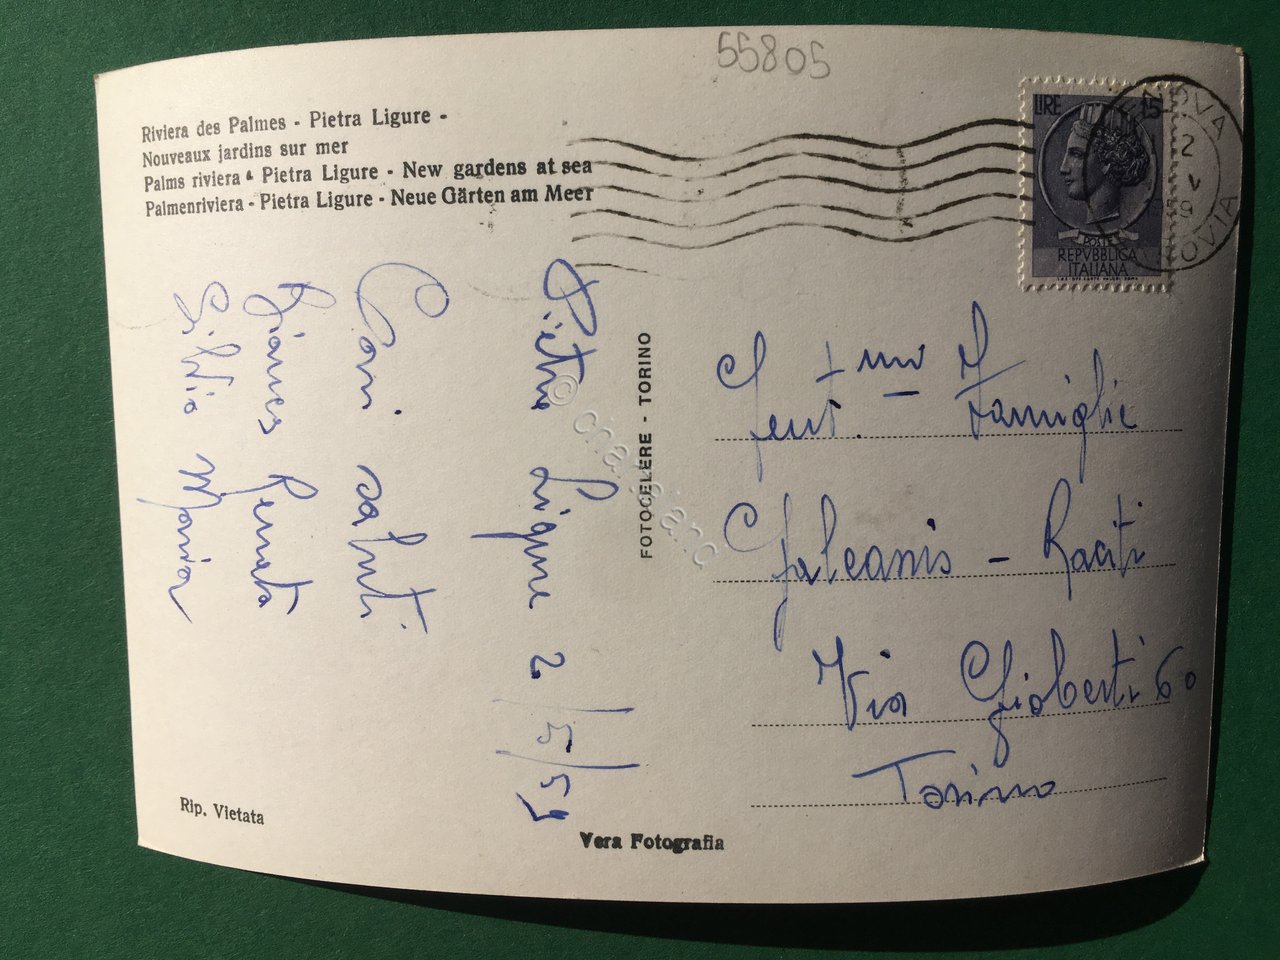 55805
Riviera des Palmes - Pietra Ligure -
Nouveaux jardins sur mer
Palms riviera - Pietra Ligure - New gardens at sea
Palmenriviera - Pietra Ligure - Neue Gärten am Meer
LIRE 15
POSTE
REPVBBLICA
ITALIANA
Pietra Ligure 2/5/59
Cari saluti
Renata
Silvio Maria
FOTOCELERE - TORINO
Gent.mi Famiglie
Galeanis - Raciti
Via Gioberti 60
Torino
Rip. Vietata
Vera Fotografia